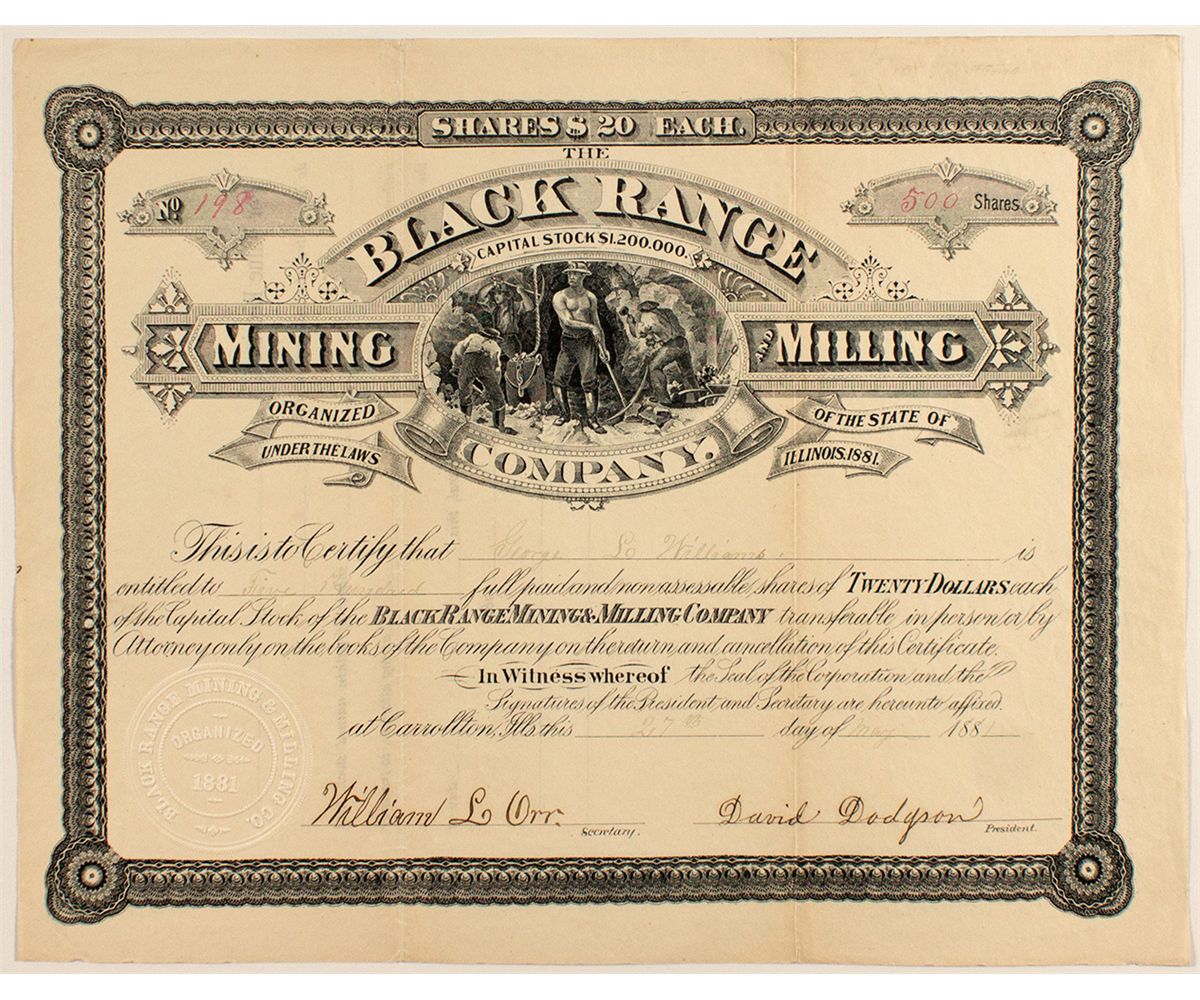 SHARES $ 20 EACH.
THE
No. 198
500 Shares
BLACK RANGE
CAPITAL STOCK $1,200,000.
MINING AND MILLING
COMPANY.
ORGANIZED
UNDER THE LAWS
OF THE STATE OF
ILLINOIS. 1881.
This is to Certify that George L Williams is
entitled to Five Hundred full paid and non assessable shares of TWENTY DOLLARS each
of the Capital Stock of the BLACK RANGE MINING & MILLING COMPANY transferable in person or by
Attorney only on the books of the Company on the return and cancellation of this Certificate.
In Witness whereof the Seal of the Corporation and the
Signatures of the President and Secretary are hereunto affixed
at Carrollton, Ills. this 27th day of May 1881
BLACK RANGE MINING & MILLING CO.
ORGANIZED
1881
William L Orr. Secretary.
David Dodgson President.